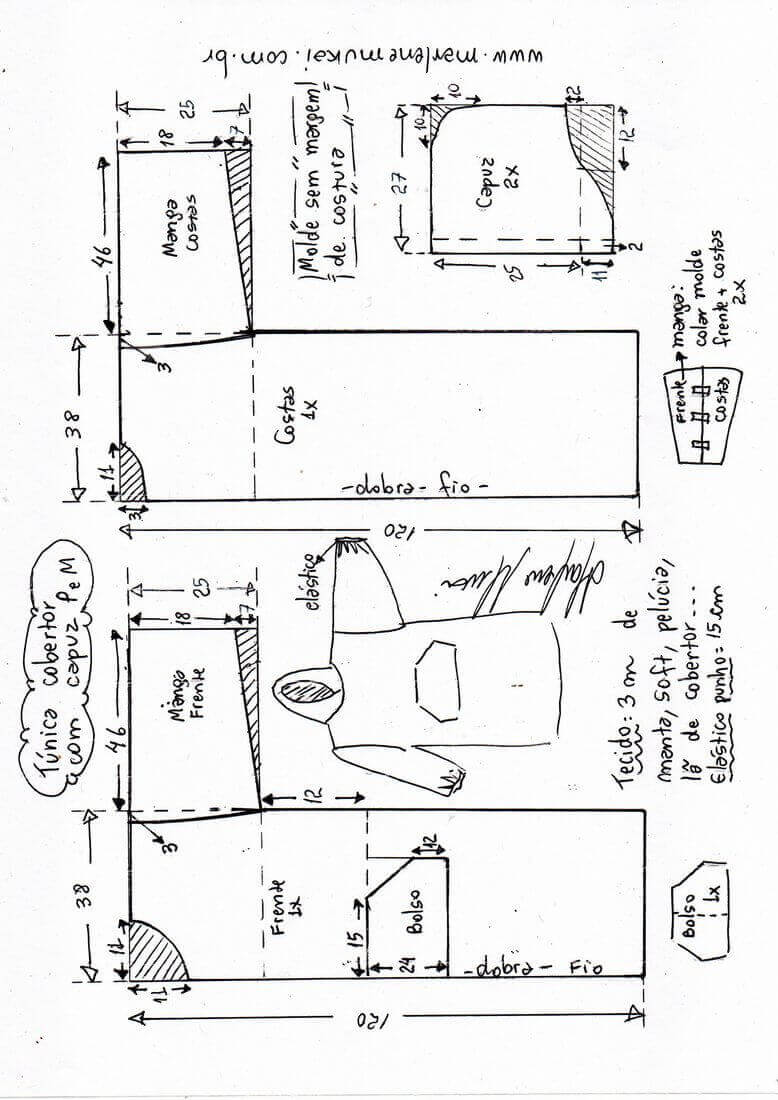 Túnica cobertor
com capuz P e M
38
46
11
11
3
25
18
7
Manga
Frente
Frente
1x
12
15
Bolso
12
24
-dobra- Fio
120
Bolso
1x
elástico
Tecido: 3 m de
manta, soft, pelúcia,
lã de cobertor...
Elástico punho: 15 cm
38
46
11
3
3
25
18
7
Manga
Costas
Costas
1x
-dobra-fio-
120
Molde sem margem
de costura
27
10
10
Capuz
2x
12
12
25
11
2
Frente
Costas
manga:
colar molde
frente + costas
2x
www.marlenemukai.com.br